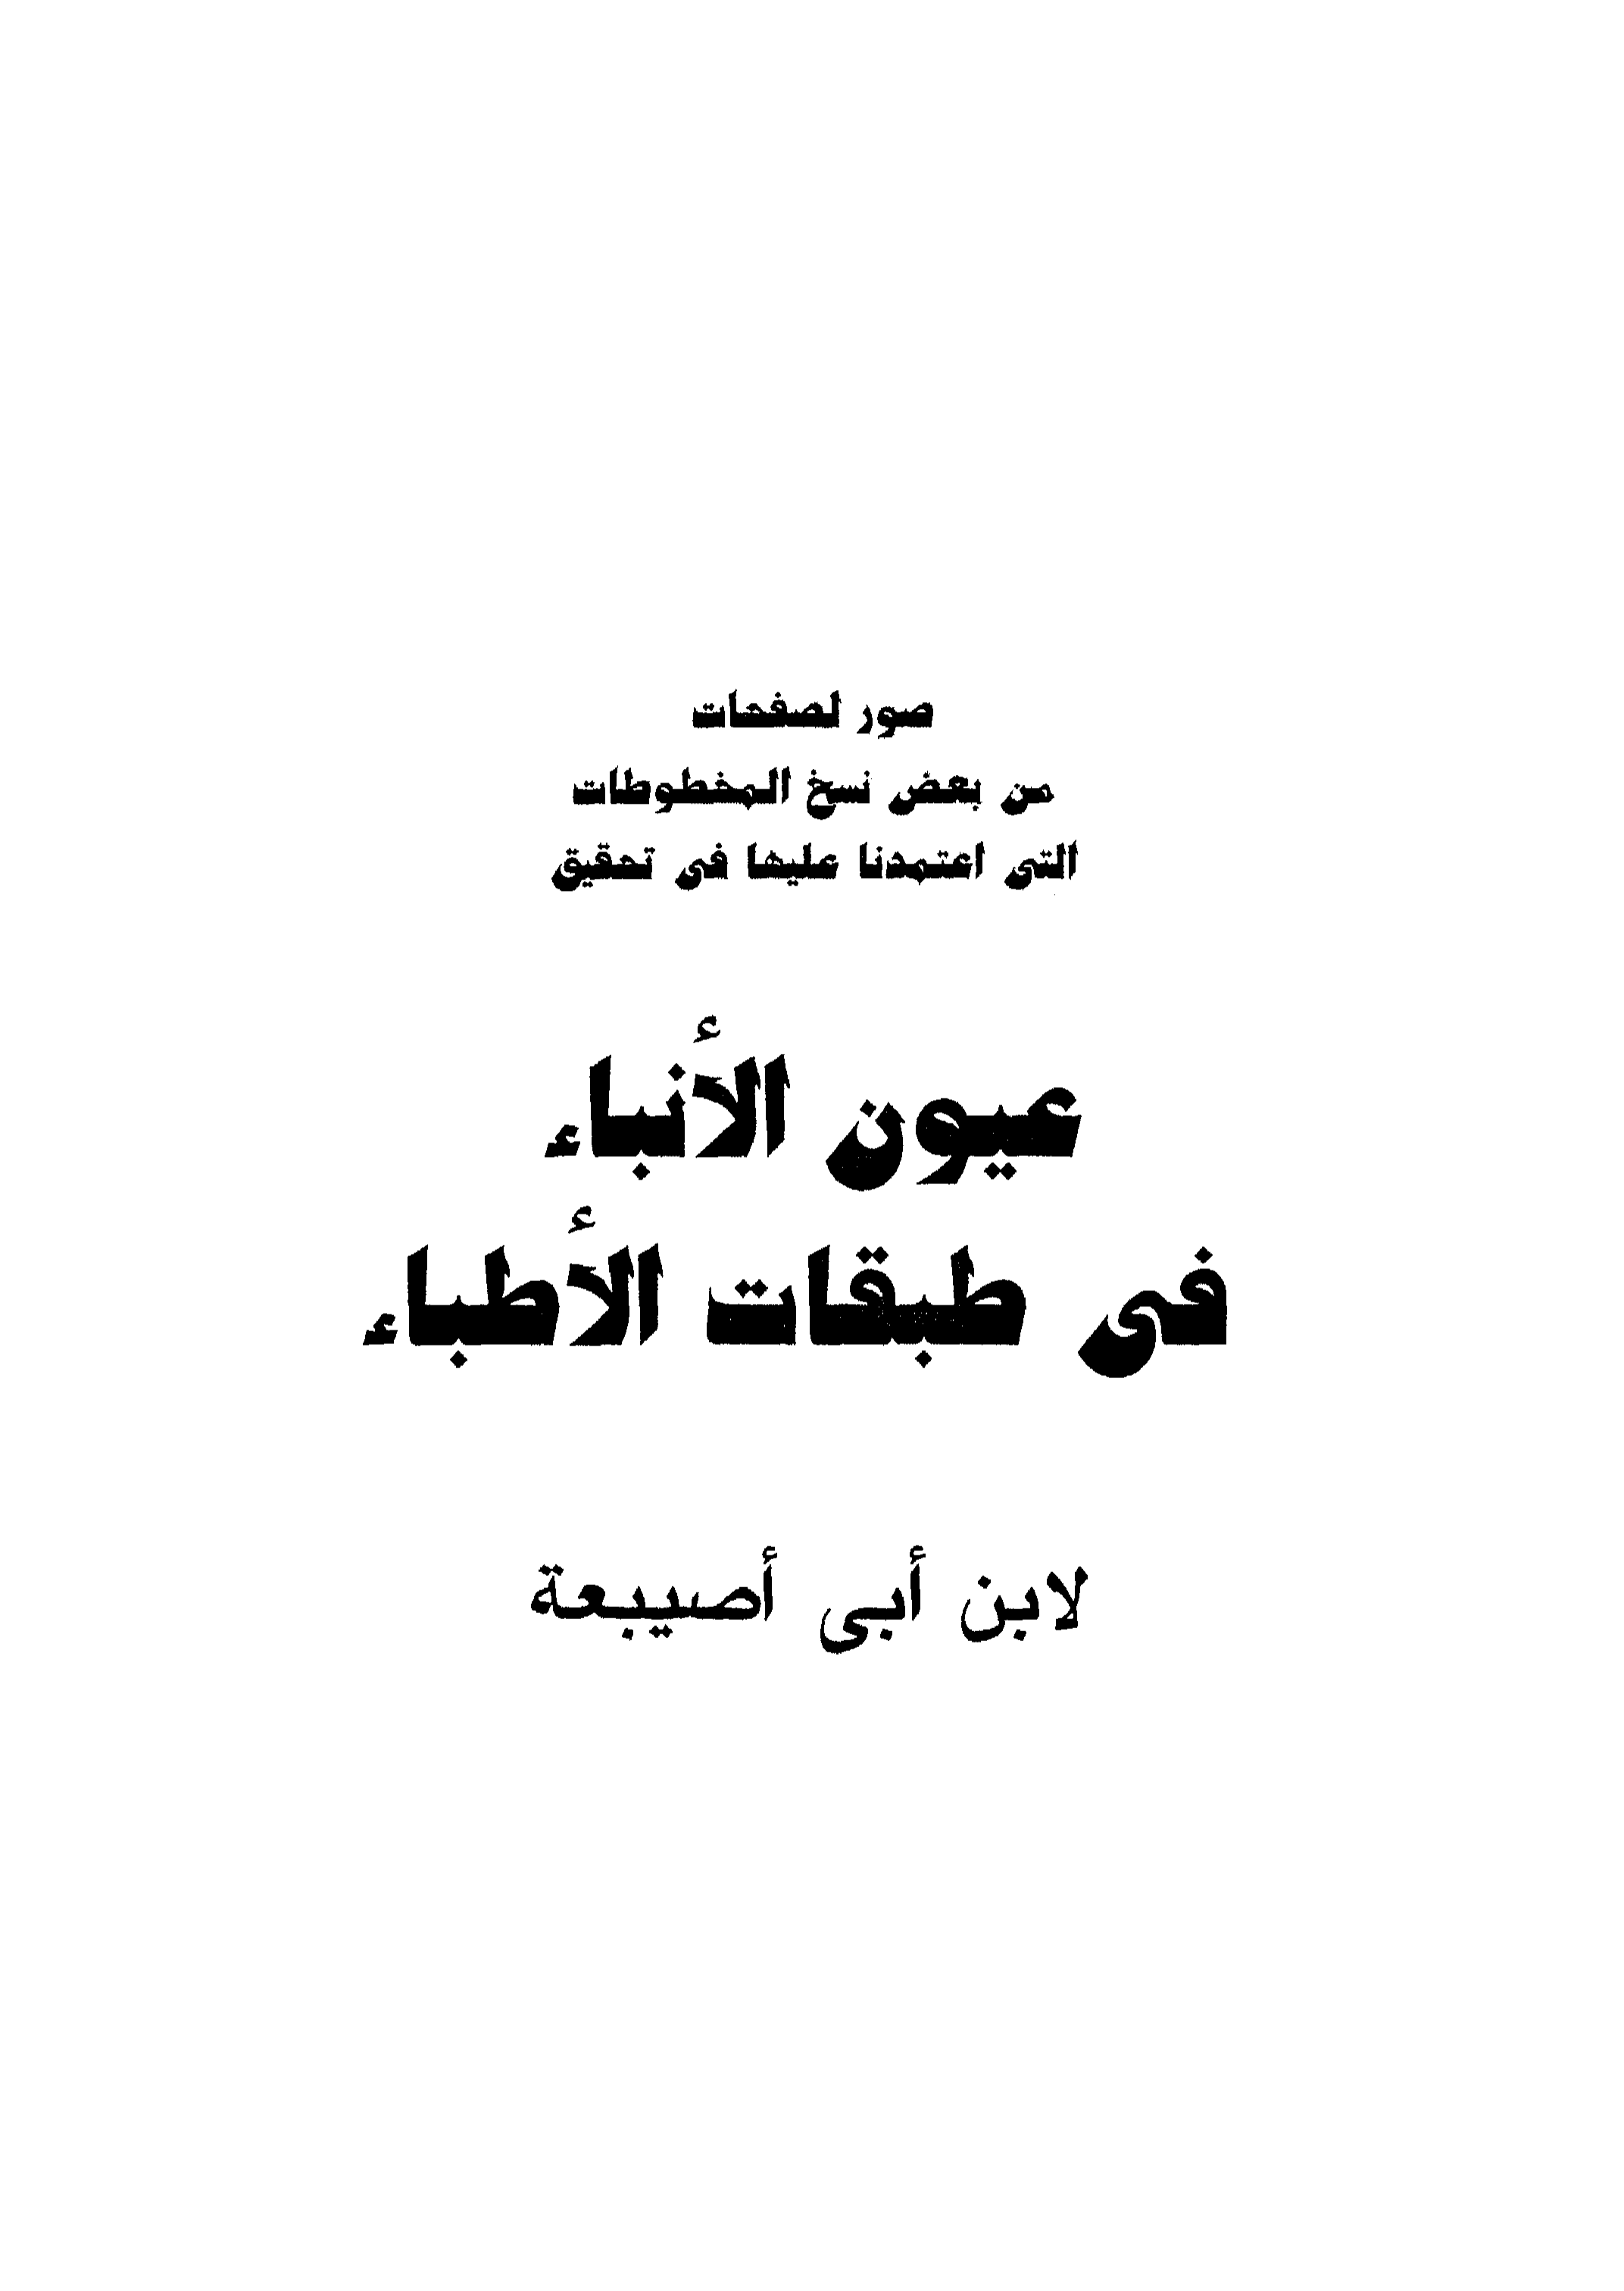 صور لصفحات
من بعض نسخ المخطوطات
التى اعتمدنا عليها فى تحقيق
عيون الأنباء
فى طبقات الأطباء
لابن أبى أصيبعة